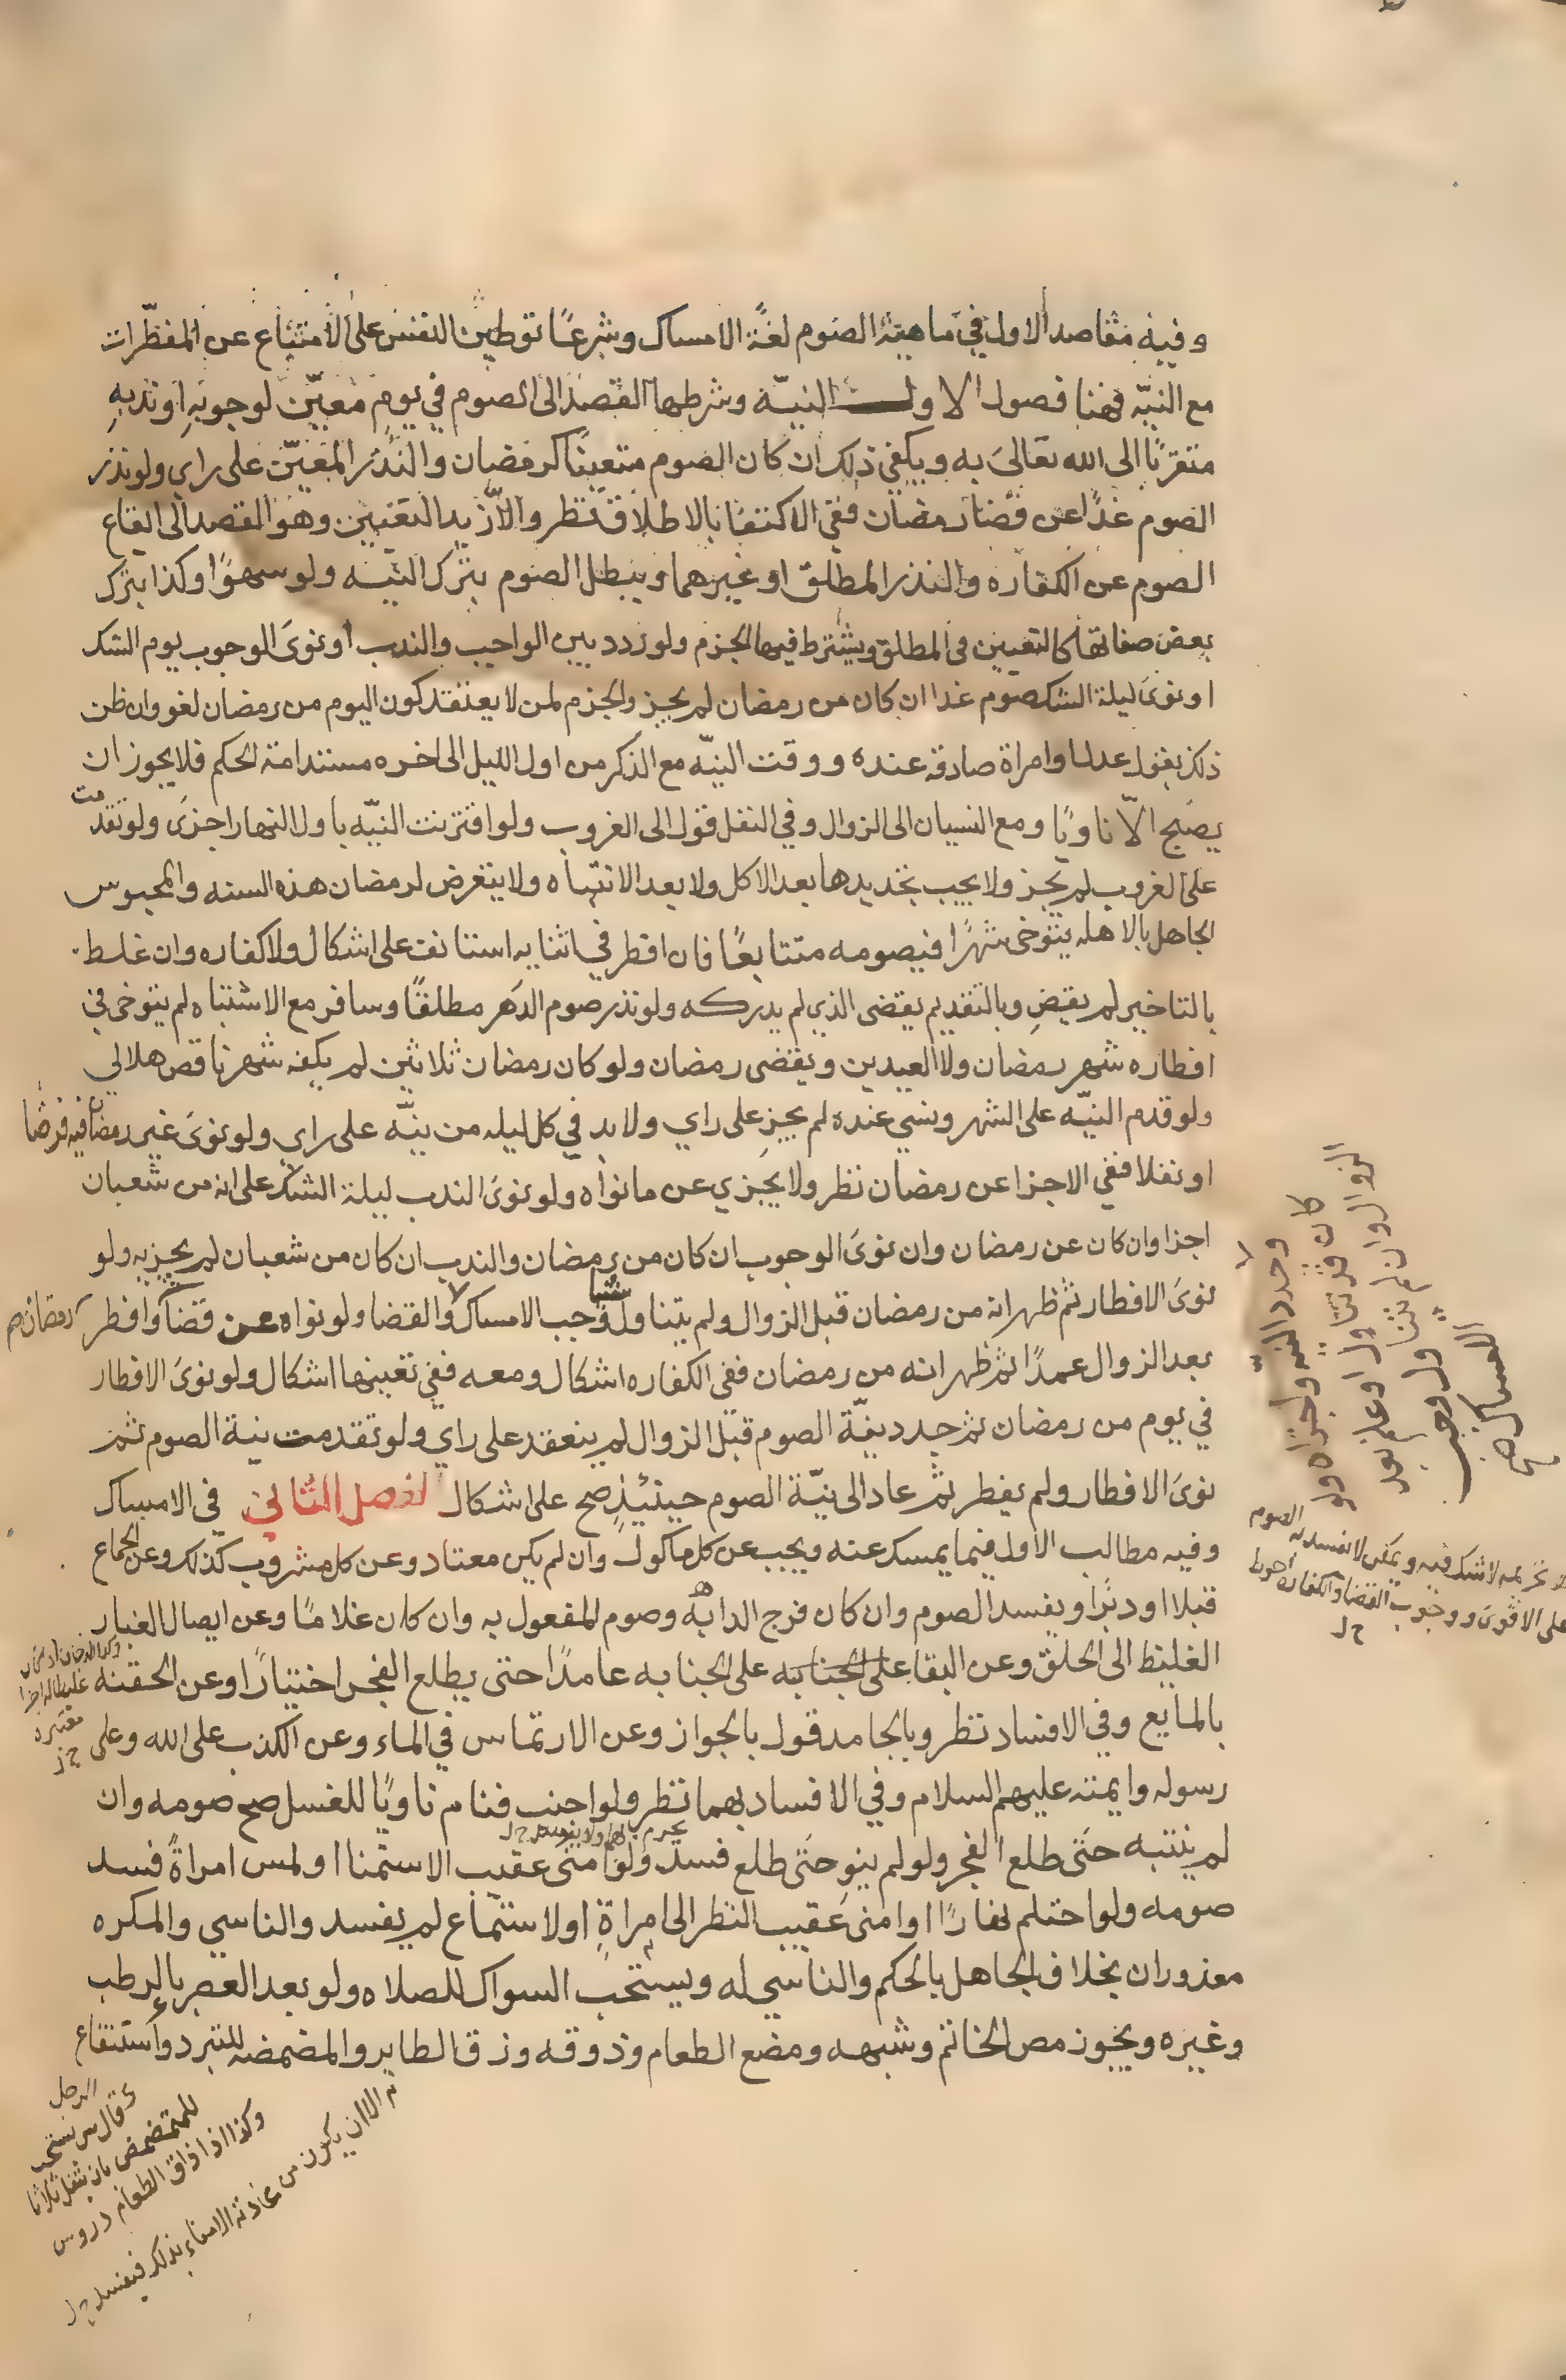 وفيه مقاصد الاول في ماهيته الصوم لغة الامساك وشرعًا توطين النفس على الامتناع عن المفطّرات
مع النيّه فهنا فصول الاول النيّه وشرطها القصد الى الصوم في يومٍ معيّن لوجوبهِ او ندبهِ
متقربًا الى الله تعالى به ويكفي ذلك ان كان الصوم متعينًا كرمضان والنذر المعيّن على راي ولو نذر
الصوم غدًا عن قضا رمضان ففي الاكتفا بالاطلاق نظر والا زيد التعيين وهو القصد الى ايقاع
الصوم عن الكفاره والنذر المطلق او غيرهما ويبطل الصوم بترك النيّه ولو سهوًا وكذا بترك
بعض صفاتها كالتعيين في المطلق ويشترط فيها الجزم ولو ردد بين الواجب والندب او نوى الوجوب يوم الشك
او نوى ليلة الشك صوم غدا ان كان من رمضان لم يجز والجزم لمن لا يعتقد كون اليوم من رمضان لغو وان ظن
ذلك بقول عدل او امراة صادقه عنده ووقت النيّه مع الذكر من اول الليل الى اخره مستدامة الحكم فلا يجوز ان
يصبح الّا ناويًا ومع النسيان الى الزوال وفي النفل قول الى الغروب ولو اقترنت النيّه باول النهار اجزى ولو تقدمت
على الغروب لم يجز ولا يجب تجديدها بعد الاكل ولا بعد الانتباه ولا يتعرض لرمضان هذه السنه والمحبوس
الجاهل بالاهله يتوخى شهرًا فيصومه متتابعًا فان افطر في اثنايه استانف على اشكال ولا كفاره وان غلط
بالتاخير لم يقضِ وبالتقديم يقضى الذي لم يدركه ولو نذر صوم الدهر مطلقًا وسافر مع الاشتباه لم يتوخى في
افطاره شهر رمضان ولا العيدين ويقضى رمضان ولو كان رمضان ثلاثين لم يكفه شهر ناقص هلالي
ولو قدم النيّه على الشهر ونسي عنده لم يجزِ على راي ولابد في كل ليله من نيّه على راي ولو نوى غير رمضان فيه فرضًا
او نفلا ففي الاجزا عن رمضان نظر ولا يجزي عن ما نواه ولو نوى الندب ليلة الشك على انه من شعبان
اجزا وان كان عن رمضان وان نوى الوجوب ان كان من رمضان والندب ان كان من شعبان لم يجزيه ولو
نوى الافطار ثم ظهر انه من رمضان قبل الزوال ولم يتناول شيًا وجب الامساك لا والقضا ولو نواه عن قضا رمضان وافطر
بعد الزوال عمدًا ثم ظهر انه من رمضان ففي الكفاره اشكال ومعه ففي تعينها اشكال ولو نوى الافطار
في يوم من رمضان ثم جدد نيّة الصوم قبل الزوال لم ينعقد على راي ولو تقدمت نية الصوم ثم
نوى الافطار ولم يفطر ثم عاد الى نيّة الصوم حينئذٍ صح على اشكال الفصل الثاني في الامساك
وفيه مطالب الاول فيما يمسك عنه ويجب عن كل ماكول وان لم يكن معتاد وعن كل مشروب كذلك وعن الجماع
قبلا او دبرًا ويفسد الصوم وان كان فرج الدابه وصوم المفعول به وان كان غلامًا وعن ايصال الغبار
الغليظ الى الحلق وعن البقا على الجنابه على الجنابه عامدًا حتى يطلع الفجر اختيارًا وعن الحقنه
بالمايع وفي الافساد نظر وبالجامد قول بالجواز وعن الارتماس في الماء وعن الكذب على الله وعلى
رسوله وايمته عليهم السلام وفي الافساد بهما نظر ولو اجنب فنام ناويًا للغسل صح صومه وان
لم ينتبه حتى طلع الفجر ولو لم ينوِ حتى طلع فسد ولو امنى عقيب الاستمنا او لمس امراةً فسد
صومه ولو احتلم نهارًا او امنى عقيب النظر الى امراةٍ او لاستماع لم يفسد والناسي والمكره
معذوران بخلاف الجاهل بالحكم والناسي له ويستحب السواك للصلاه ولو بعد العصر بالرطب
وغيره ويجوز مص الخاتم وشبهه ومضغ الطعام وذوقه وزق الطاير والمضمضه للتبرد واستنقاع
الرجل
وجدد النيّه واجزاه ولو
كان قد تناول او علم بعد
الزوال وان لم يتناول وجب
الامساك صح
لا تحريمه لا شك فيه ويمكن لا يفسد به الصوم
على الاقوى ووجوب القضا والكفاره احوط
وكذا الدخان
غليظا له اجزا
معتبره
قال س يستحب
للمتمضمض ان يتفل ثلاثا
وكذا اذا ذاق الطعام دروس
الا ان يكون من عادته الامناء بذلك فيفسد